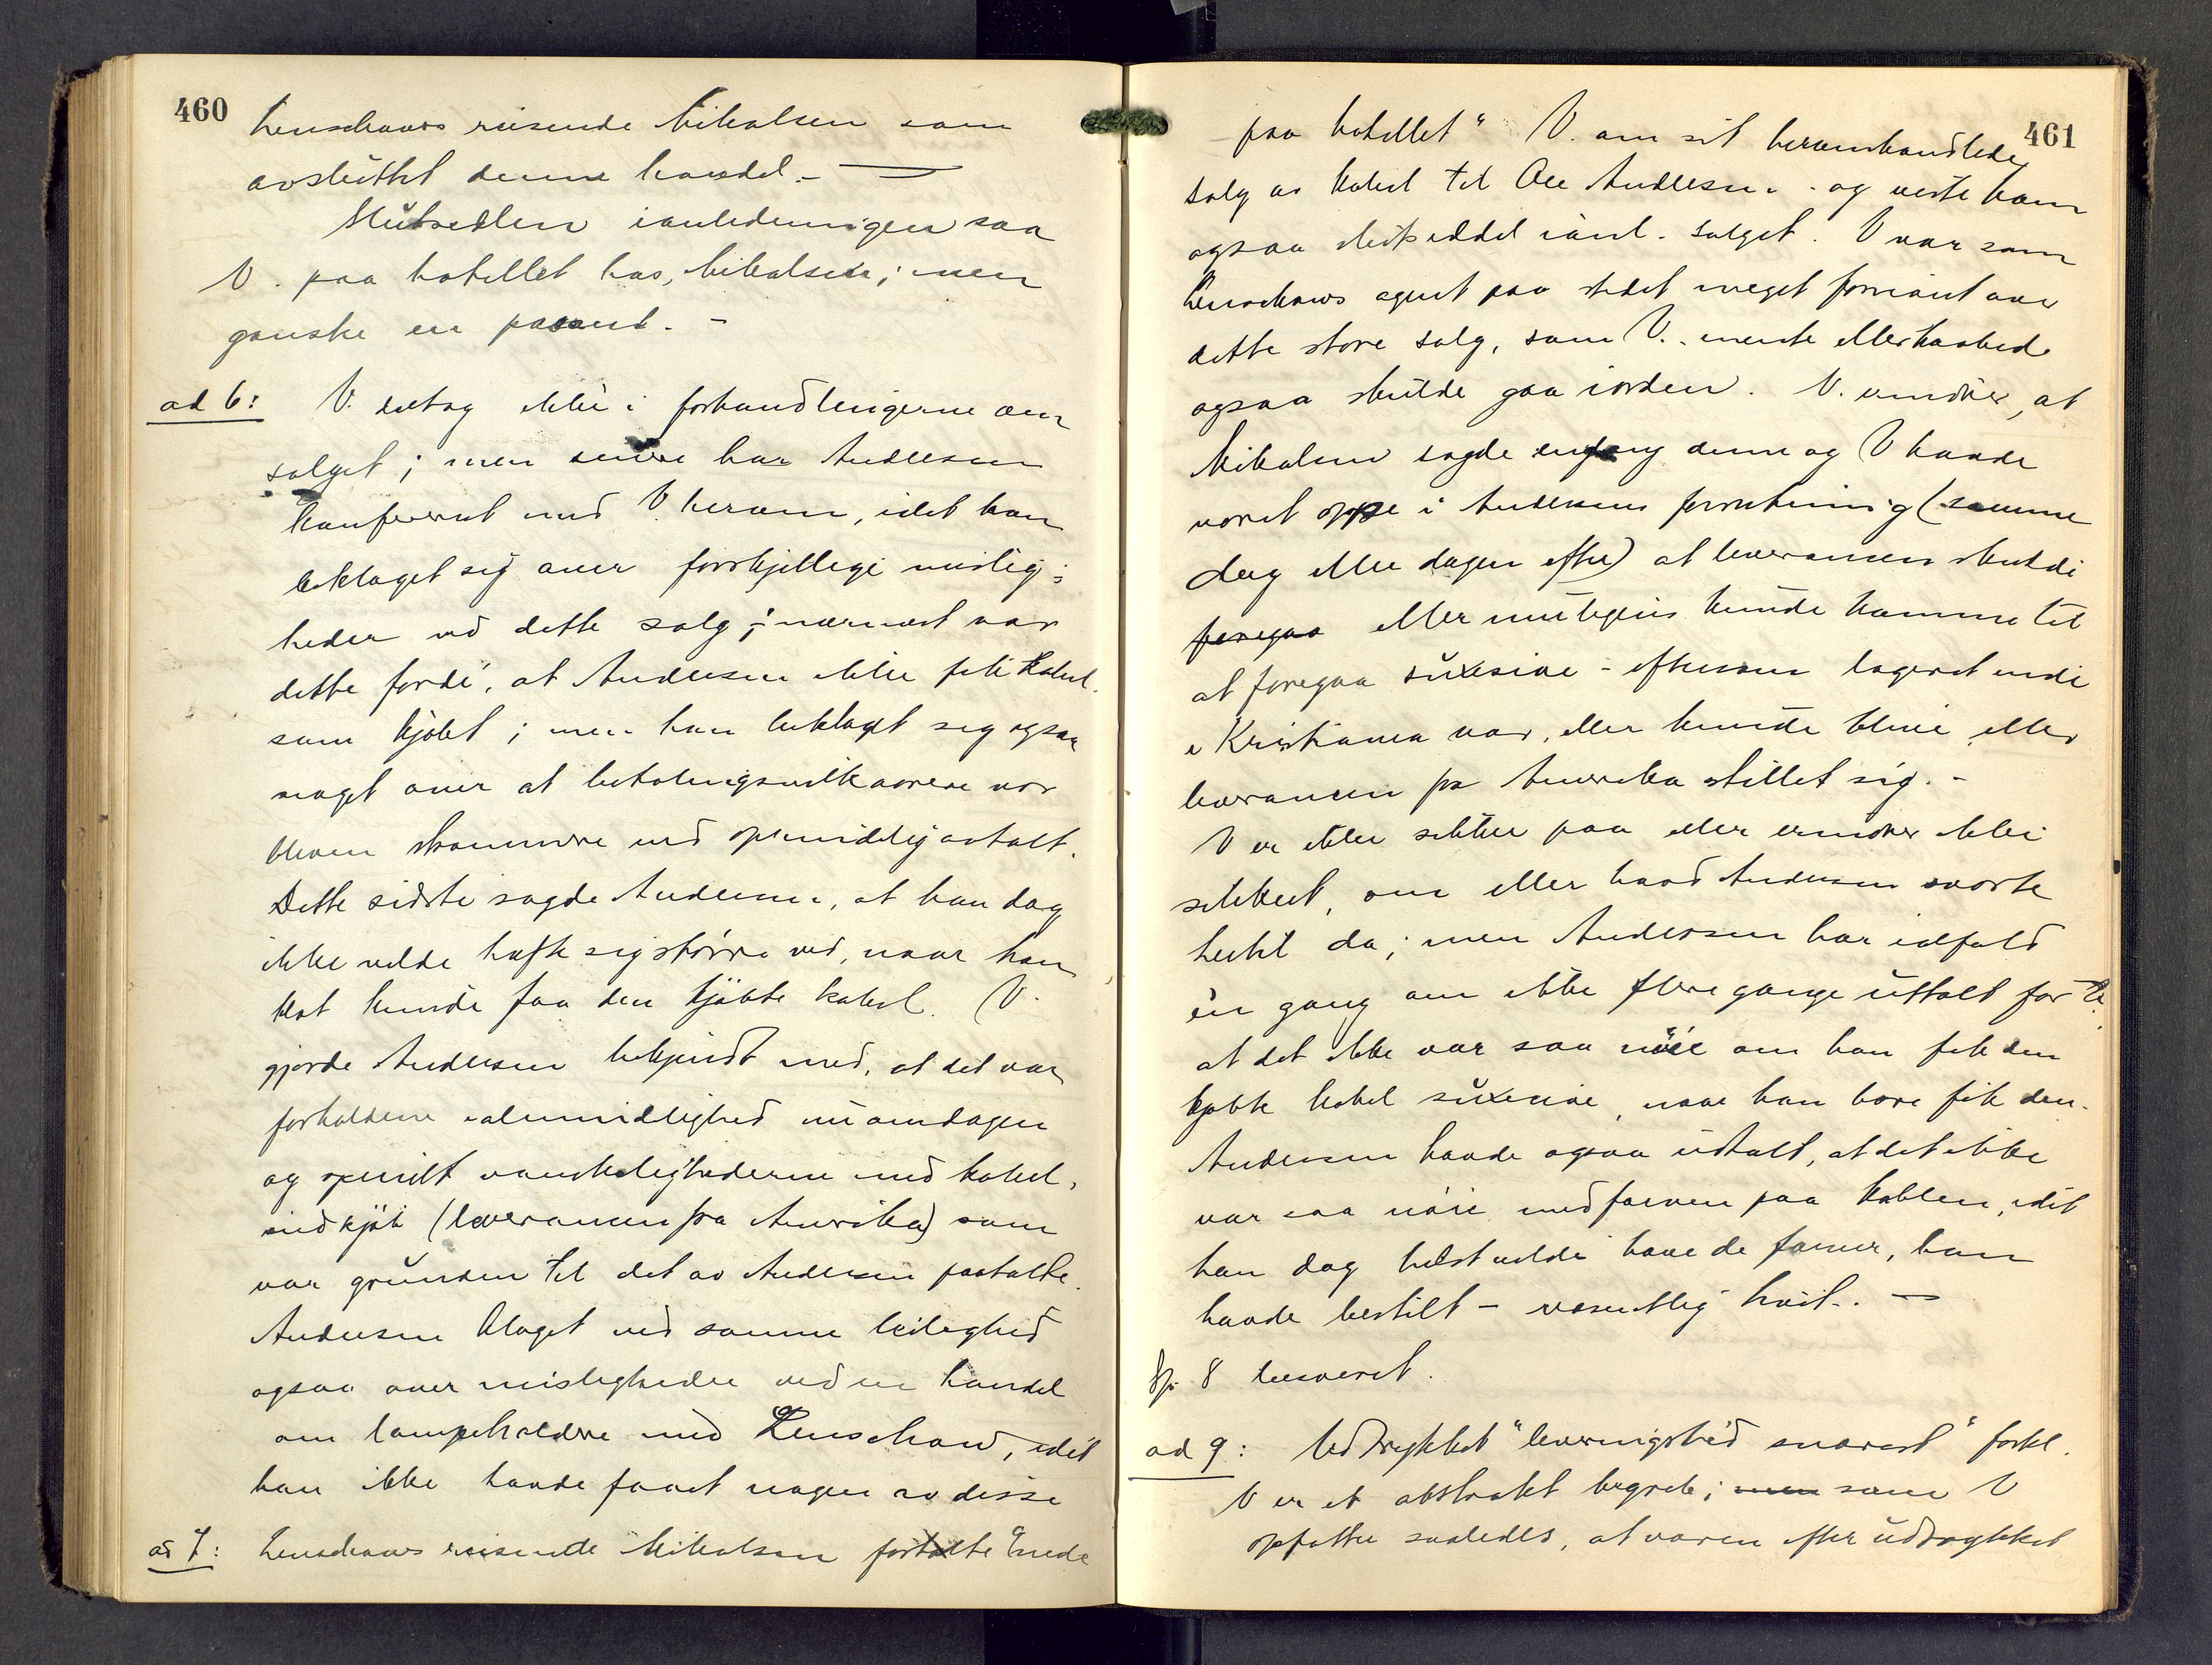 460
Lenschows reisende Mikalsen som
avsluttet denne handel. —
Slutsedlen i anledningen saa
V. paa hotellet hos Mikalsen; men
ganske en passant. -
ad 6: V. deltog ikke i forhandlingerne om
salget; men senere har Andersen
konfereret med V. herom, idet han
beklaget sig over forskjellige mislig-
heder ved dette salg; nærmest var
dette fordi, at Andersen ikke fik kabel
som kjøbt; men han beklaget sig ogsaa
noget over at betalingsvilkaarene var
bleven strammere end oprindelig avtalt.
Dette sidste sagde Andersen, at han dog
ikke vilde hefte sig større ved, naar han
blot kunde faa den kjøbte kabel. V.
gjorde Andersen bekjendt med, at det var
forholdene i almindelighed nu om dagen
og specielt vanskelighederne med kabel-
indkjøb (leverancen fra Amerika) som
var grunden til det av Andersen paatalte.
Andersen klaget ved samme leilighed
ogsaa over misligheder ved en handel
om lampeholdere med Lenschow, idet
han ikke havde faaet nogen av disse
ad 7: Lenschows reisende Mikalsen fortalte "nede
461
paa hotellet" V. om sit heromhandlede
salg av kabel til Ole Andersen - og viste ham
ogsaa slutseddel i anl. salget. V var som
Lenschows agent paa stedet meget fornøiet over
dette store salg, som V. mente eller haabede
ogsaa skulde gaa iorden. V. erindrer, at
Mikalsen sagde engang denne og V havde
været oppe i Andersens forretning (samme
dag eller dagen efter) at leverancen skulde
foregaa eller muligens kunde komme til
at foregaa suxesive - eftersom lageret nede
i Kristiania var, eller kunde blive eller
leverancen fra Amerika stillet sig. -
V er ikke sikker paa eller erindrer ikke
sikkert, om eller hvad Andersen svarte
hertil da; men Andersen har ialfald
én gang om ikke flere gange uttalt for V.
at det ikke var saa nøie om han fik den
kjøbte kabel suxesive, naar han bare fik den.
Andersen havde ogsaa uttalt, at det ikke
var saa nøie med farven paa kablen, idet
han dog helst vilde have de farver, han
havde bestilt - væsentlig hvit. —
Sp. 8 besvaret.
ad 9: Udtrykket "leveringstid snarest" forkl.
V er et abstrakt begreb; men som V
opfatter saaledes, at varen efter udtrykket